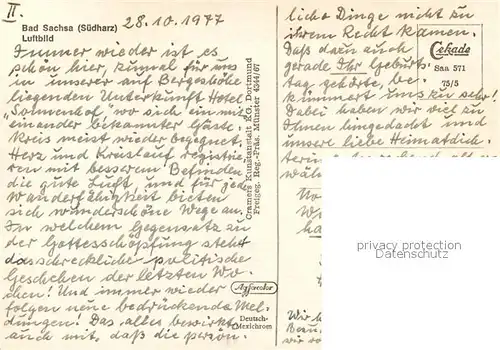 II.
28.10.1977
Bad Sachsa (Südharz)
Luftbild
Immer wieder ist es
schön hier, zumal für uns
in unserer auf Bergeshöhe
liegenden Unterkunft Hotel
"Sonnenhof", wo sich ein mit
einander bekannter Gäste-
kreis meist wieder begegnet.
Herz und Kreislauf registrie-
ren mit besseren Befinden
die gute Luft, und für jede
Wanderfähigkeit bieten
sich wunderschöne Wege an.
In welchem Gegensatz zu
der Gottesschöpfung steht
das schreckliche politische
Geschehen der letzten Wo-
chen! Und immer wieder
folgen neue bedrückende Mel-
dungen! Das alles bewirkte
auch mit, daß die persön-
Cramers Kunstanstalt KG, Dortmund
Freigeg. Reg.-Präs. Münster 4344/67
Agfacolor
Deutsch-
Mexichrom
liche Dinge nicht zu
ihrem Recht kamen.
Daß dazu auch
gerade Ihr Geburts-
tag gehörte, be-
kümmert uns sehr!
Dabei haben wir viel zu
Ihnen hingedacht und
unsere liebe Heimatdich-
terin
wäh
Cekade
Saa 571
75/5
Wir
privacy protection
ansichtskarten-center.de